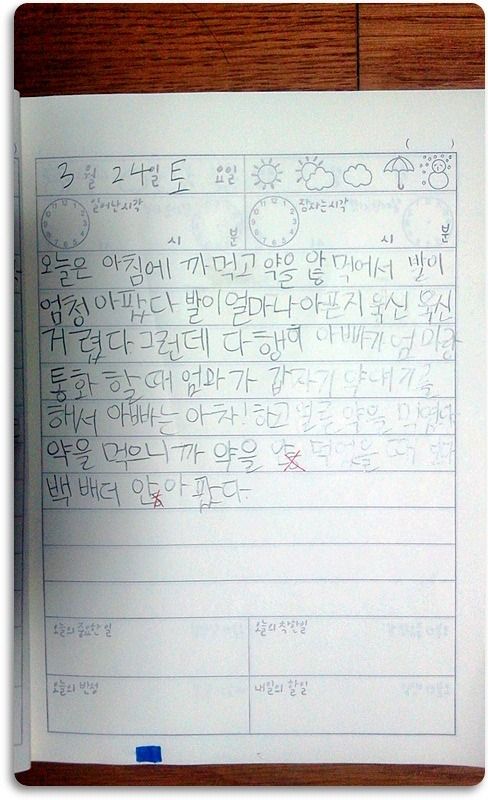 ( )
3월 24일 토요일
일어난 시각 시 분 잠자는 시각 시 분
오늘은 아침에 까먹고 약을 않 먹어서 발이
엄청 아팠다 발이 얼마나 아픈지 욱신 욱신
거렸다. 그런데 다행이 아빠가 엄마랑
통화 할 때 엄마가 갑자기 약얘기를
해서 아빠는 아차! 하고 얼른 약을 먹였다
약을 먹으니까 약을 않 먹었을 때 보다
백 배더 않아 팠다.
오늘의 중요한 일 오늘의 착한일
오늘의 반성 내일의 할일